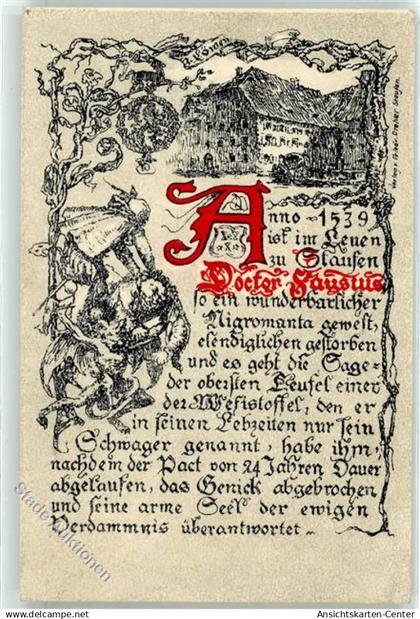 z. Löwen
Anno 1539
ist im Leuen
zu Staufen
Doctor Faustus
so ein wunderbarlicher
Nigromanta gewest,
elendiglichen gestorben
und es geht die Sage
der obersten Teufel einer
der Mefistoffel, den er
in seinen Lebzeiten nur sein
Schwager genannt, habe ihm,
nachdem der Pact von 24 Jahren Dauer
abgelaufen, das Genick abgebrochen
und seine arme Seel der ewigen
Verdammnis überantwortet
Stade Auktionen
© Ansichtskarten-Center